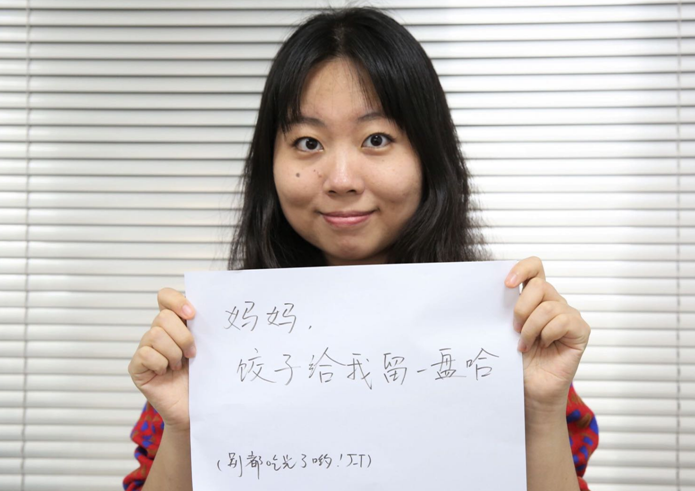 妈妈，
饺子给我留一盘哈
（别都吃光了哟！TT）